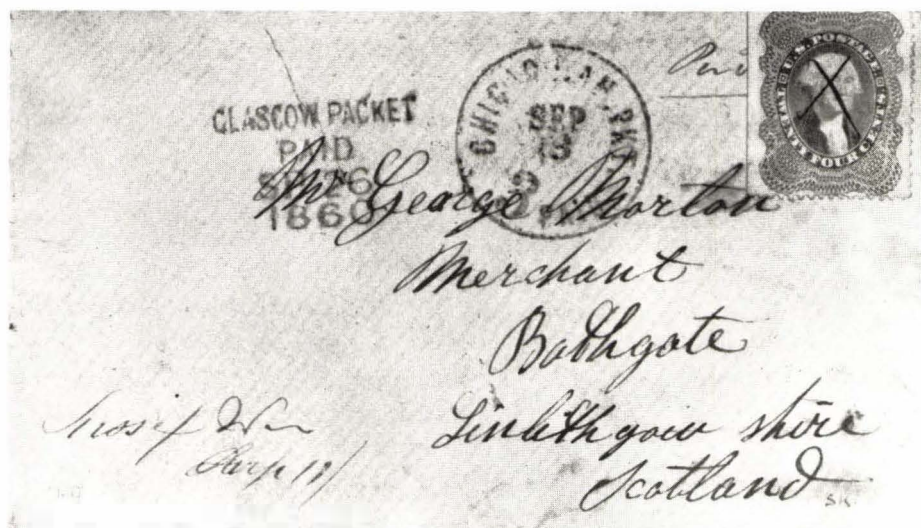 GLASGOW PACKET
PAID
26
1860
CHICAGO AM. PKT
SEP
Paid
U.S. POSTAGE
TWENTY FOUR CENTS
Mr George Morton
Merchant
Bathgate
Linlithgow shire
Scotland
SK